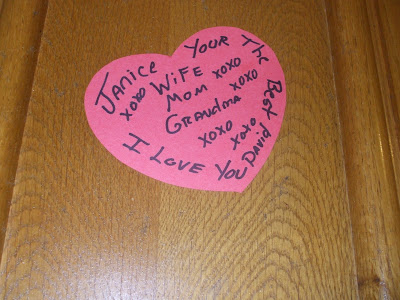 Janice Your The Best
xoxo Wife xoxo
Mom xoxo
Grandma
xoxo xoxo
I Love You David